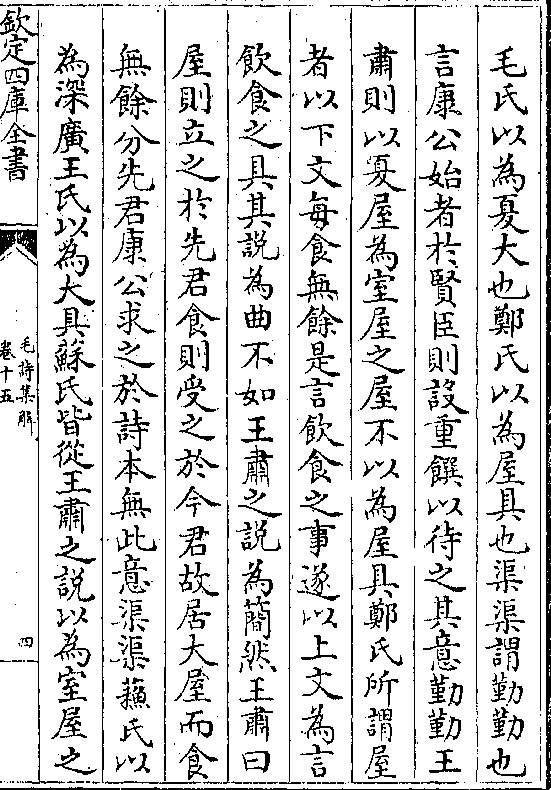 毛氏以為夏大也鄭氏以為屋具也渠渠謂勤勤也
言康公始者於賢臣則設重饌以待之其意勤勤王
肅則以夏屋為室屋之屋不以為屋具鄭氏所謂屋
者以下文每食無餘是言飲食之事遂以上文為言
飲食之具其説為曲不如王肅之説為簡然王肅曰
屋則立之於先君食則受之於今君故居大屋而食
無餘分先君康公求之於詩本無此意渠渠蘓氏以
為深廣王氏以為大具蘇氏皆從王肅之説以為室屋之
欽定四庫全書
毛詩集解
卷十五
四